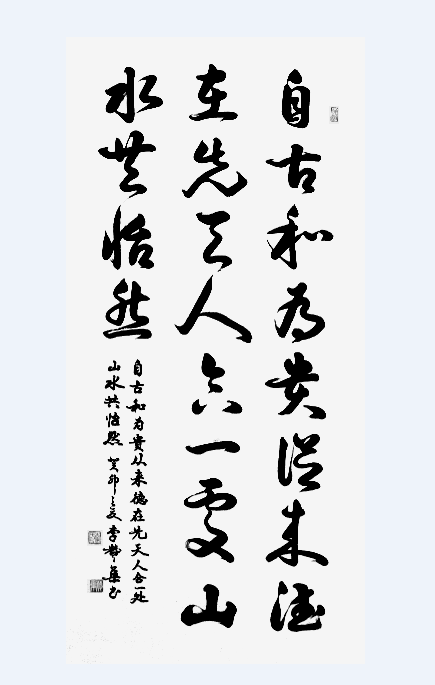 自古和為貴從来德
在先天人合一處山
水共怡然
自古和为貴从来德在先天人合一处
山水共怡然 癸卯之夏李静集书